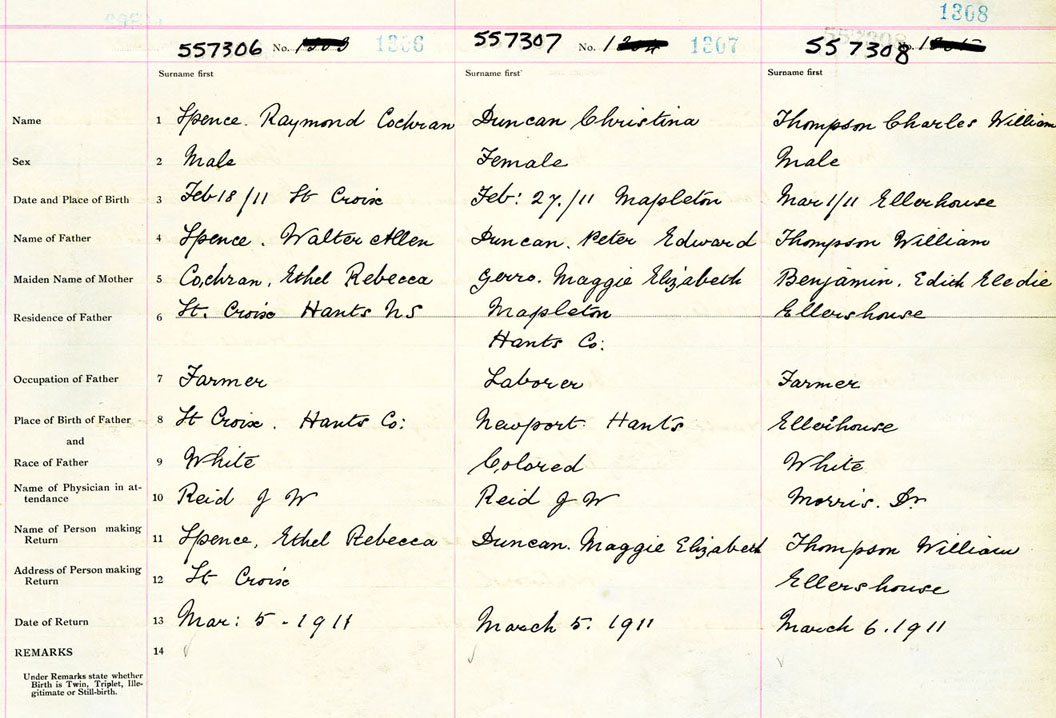 1308
557306 No. 1306 557307 No. 1 1307 557308 No. 1
Surname first Surname first Surname first
Name 1 Spence. Raymond Cochran Duncan Christina Thompson Charles William
Sex 2 Male Female Male
Date and Place of Birth 3 Feb 18/11 St Croix Feb: 27./11 Mapleton Mar 1/11 Ellerhouse
Name of Father 4 Spence. Walter Allen Duncan. Peter Edward Thompson William
Maiden Name of Mother 5 Cochran, Ethel Rebecca Gerro. Maggie Elizabeth Benjamin. Edith Elodie
Residence of Father 6 St. Croix Hants NS Mapleton Ellershouse
Hants Co:
Occupation of Father 7 Farmer Laborer Farmer
Place of Birth of Father 8 St Croix. Hants Co: Newport Hants Ellerhouse
and
Race of Father 9 White Colored White
Name of Physician in at-
tendance 10 Reid J W Reid J W Morris. Dr
Name of Person making
Return 11 Spence, Ethel Rebecca Duncan. Maggie Elizabeth Thompson William
Address of Person making
Return 12 St Croix Ellershouse
Date of Return 13 Mar: 5-1911 March 5. 1911 March 6. 1911
REMARKS 14
Under Remarks state whether
Birth is Twin, Triplet, Ille-
gitimate or Still-birth.